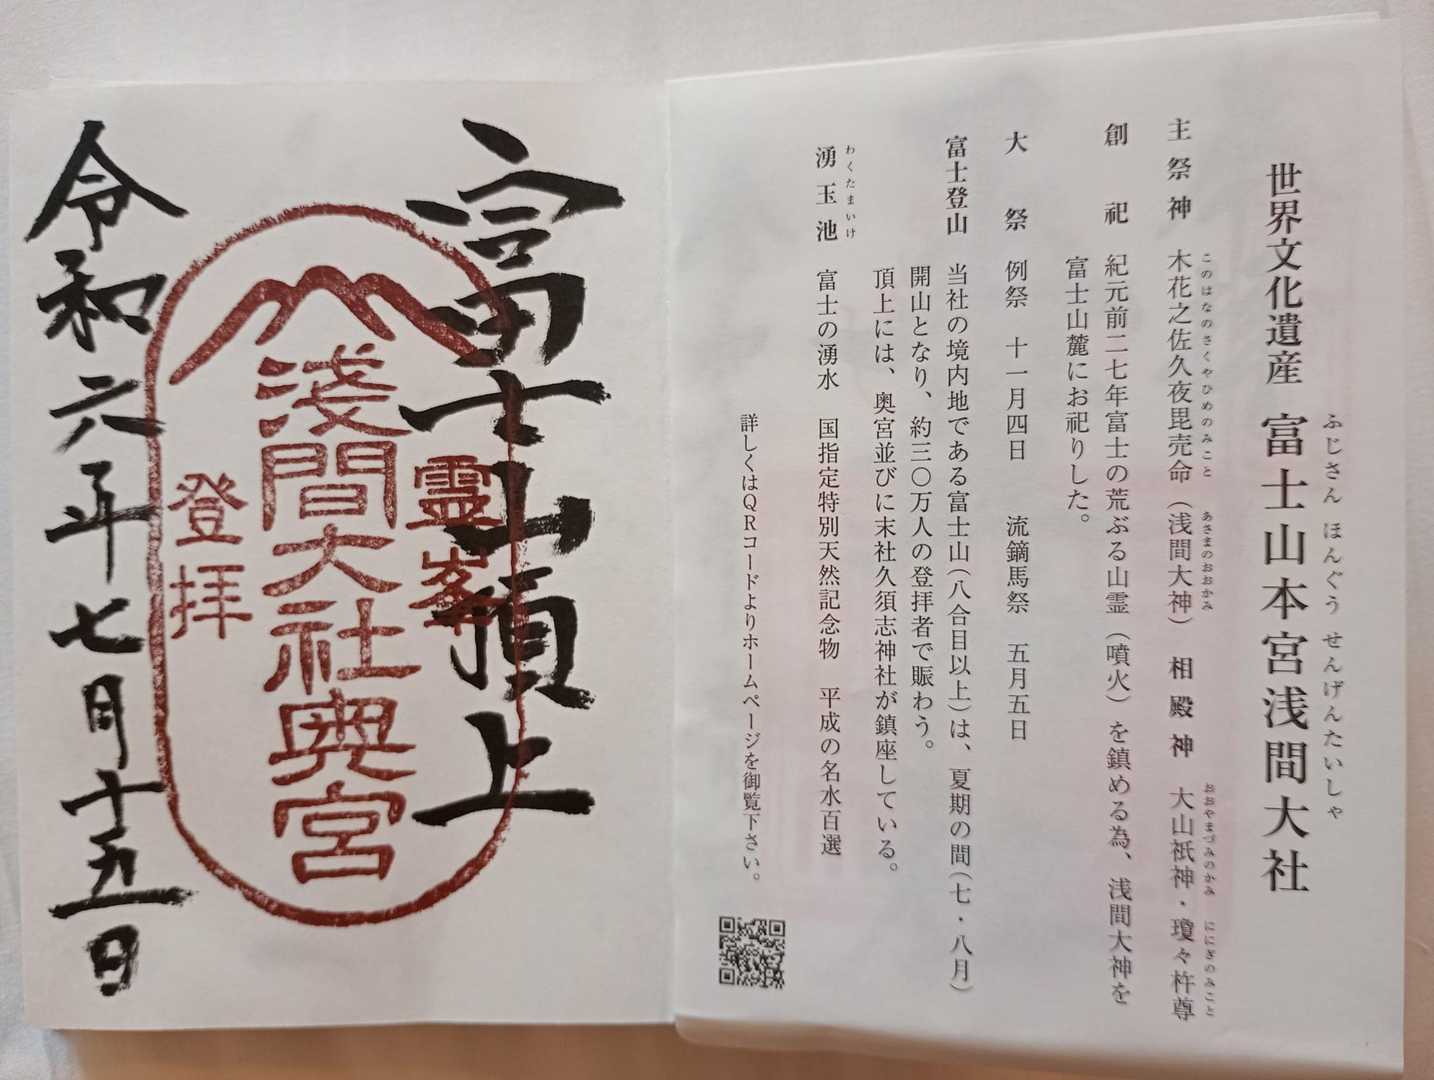 世界文化遺産 富士山本宮浅間大社
ふじさん ほんぐう せんげんたいしゃ
主祭神 木花之佐久夜毘売命（浅間大神） 相殿神 大山祇神・瓊々杵尊
このはなのさくやひめのみこと あさまのおおかみ おおやまづみのかみ ににぎのみこと
創祀 紀元前二七年富士の荒ぶる山霊（噴火）を鎮める為、浅間大神を
富士山麓にお祀りした。
大祭 例祭 十一月四日 流鏑馬祭 五月五日
富士登山 当社の境内地である富士山（八合目以上）は、夏期の間（七・八月）
開山となり、約三〇万人の登拝者で賑わう。
頂上には、奥宮並びに末社久須志神社が鎮座している。
湧玉池 富士の湧水 国指定特別天然記念物 平成の名水百選
わくたまいけ
詳しくはQRコードよりホームページを御覧下さい。
富士山頂上
霊峯
淺間大社奥宮
登拝
令和六年七月十五日